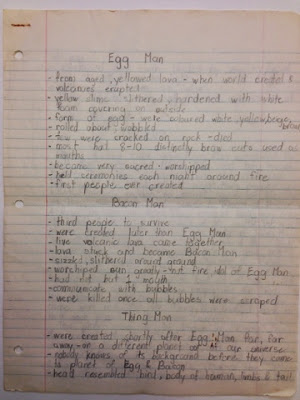 Egg Man
- from aged, yellowed lava - when world created &
volcanoes erupted
- yellow slime slithered, hardened with white
foam covering on outside
- form of egg - were coloured white, yellow, beige,
- rolled about, wobbled
- few were cracked on rock - died
- most had 8-10 distinctly brow cuts used as
mouths
- became very sacred - worshipped
- held ceremonies each night around fire
- first people ever created
Bacon Man
- third people to survive
- were created later than Egg Man
- live volcanic lava came together
- lava stuck and became Bacon Man
- sizzled, slithered around ground
- worshiped sun greatly - not fire idol of Egg Man
- had not but 1 mouth
- communicate with bubbles
- were killed once all bubbles were scraped
Thing Man
- were created shortly after Egg Man far, far
away on a different planet of our universe
- nobody knows of its background before they came
to planet of Egg & Bacon
- head resembled bird, body of human, limbs & tail